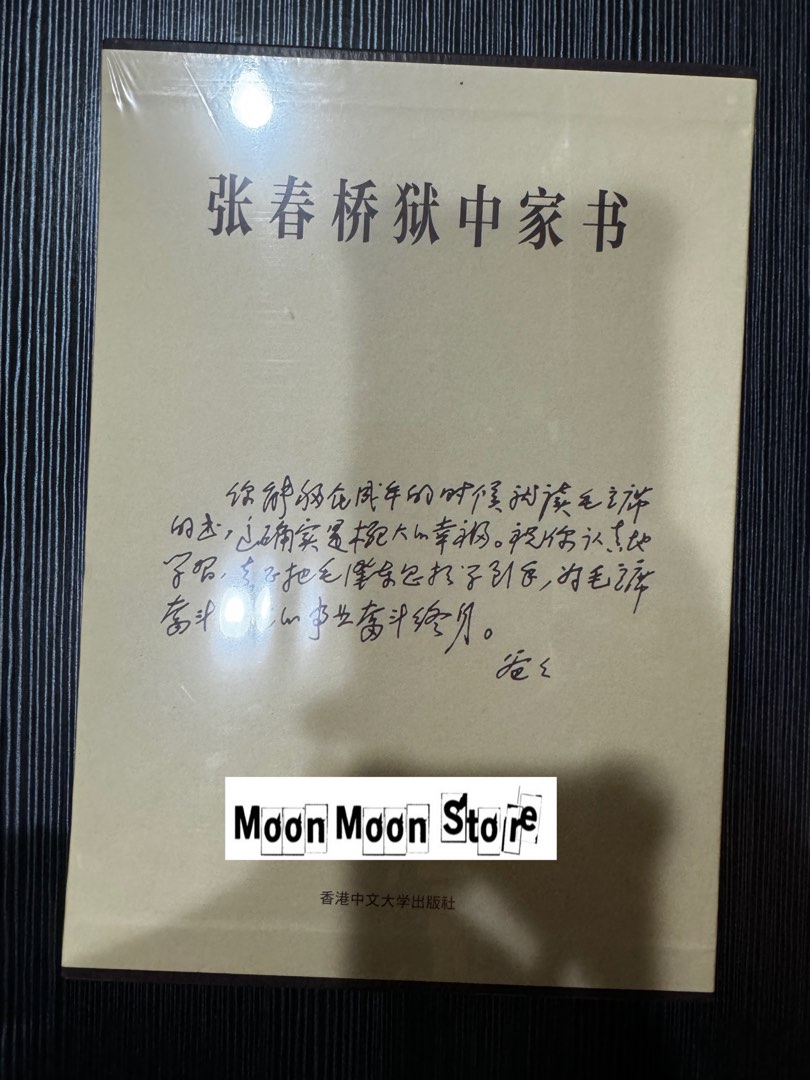 张春桥狱中家书
你能够在成年的时候就读毛主席
的书，这确实是极大的幸福。祝你认真地
学习，真正把毛泽东思想学到手，为毛主席
奋斗 的事业奋斗终身。
爸々
Moon Moon Store
香港中文大学出版社